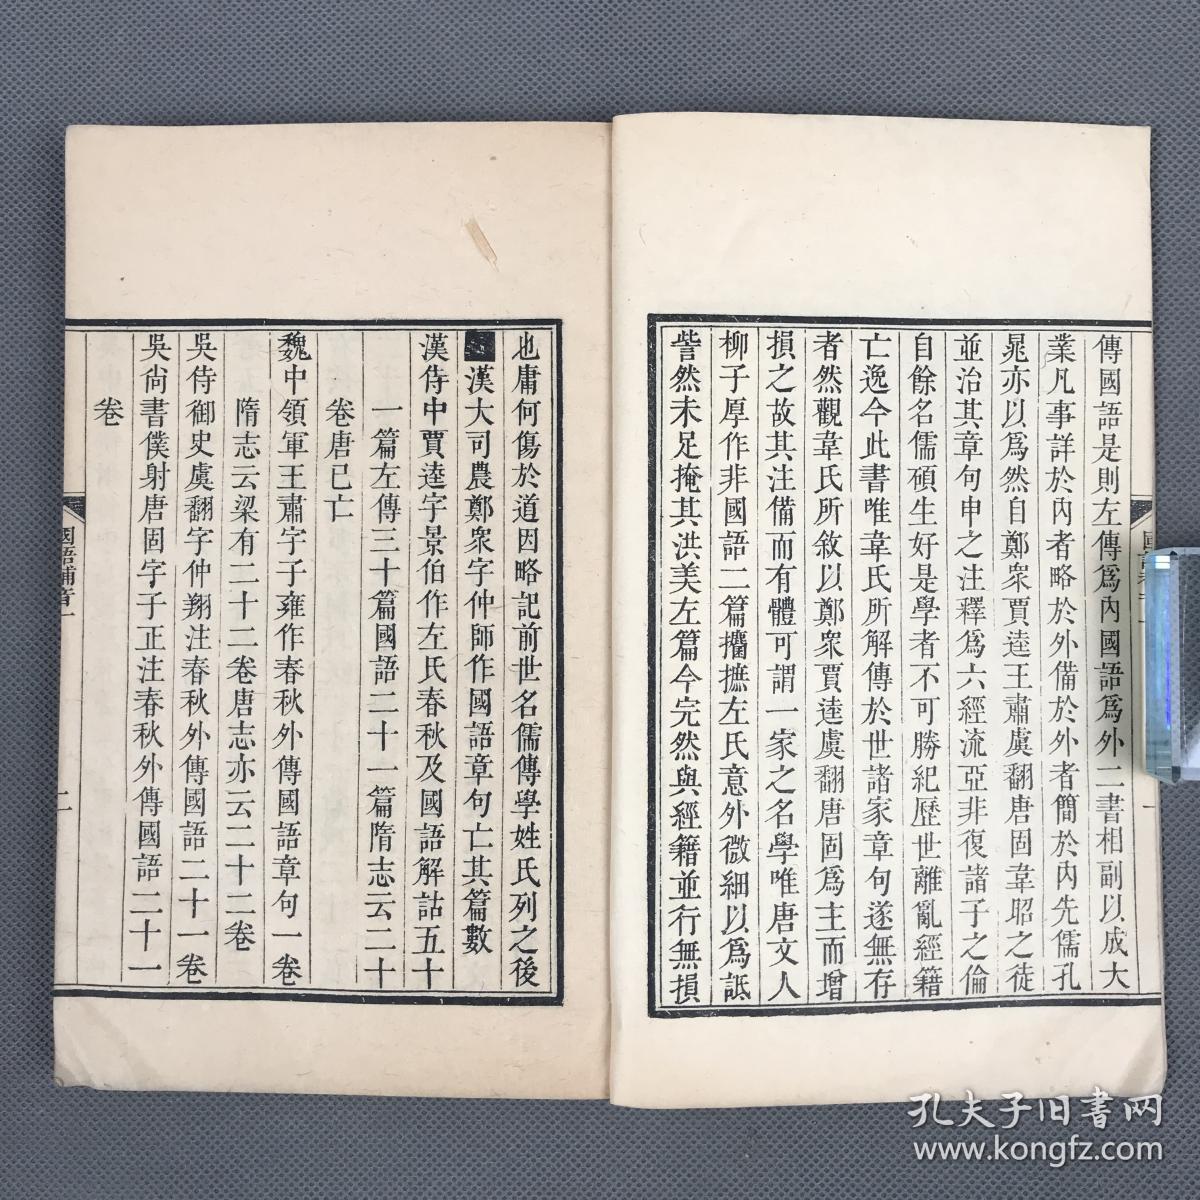 傳國語是則左傳爲內國語爲外二書相副以成大
業凡事詳於內者略於外備於外者簡於內先儒孔
晁亦以爲然自鄭衆賈逵王肅虞翻唐固韋昭之徒
並治其章句申之注釋爲六經流亞非復諸子之倫
自餘名儒碩生好是學者不可勝紀歷世離亂經籍
亡逸今此書唯韋氏所解傳於世諸家章句遂無存
者然觀韋氏所敘以鄭衆賈逵虞翻唐固爲主而增
損之故其注備而有體可謂一家之名學唯唐文人
柳子厚作非國語二篇攟摭左氏意外微細以爲詆
訾然未足掩其洪美左篇今完然與經籍並行無損
也庸何傷於道因略記前世名儒傳學姓氏列之後
漢大司農鄭衆字仲師作國語章句亡其篇數
漢侍中賈逵字景伯作左氏春秋及國語解詁五十
一篇左傳三十篇國語二十一篇隋志云二十
卷唐已亡
魏中領軍王肅字子雍作春秋外傳國語章句一卷
隋志云梁有二十二卷唐志亦云二十二卷
吳侍御史虞翻字仲翔注春秋外傳國語二十一卷
吳尙書僕射唐固字子正注春秋外傳國語二十一
卷
國語補音一
二
孔夫子旧书网
www.kongfz.com